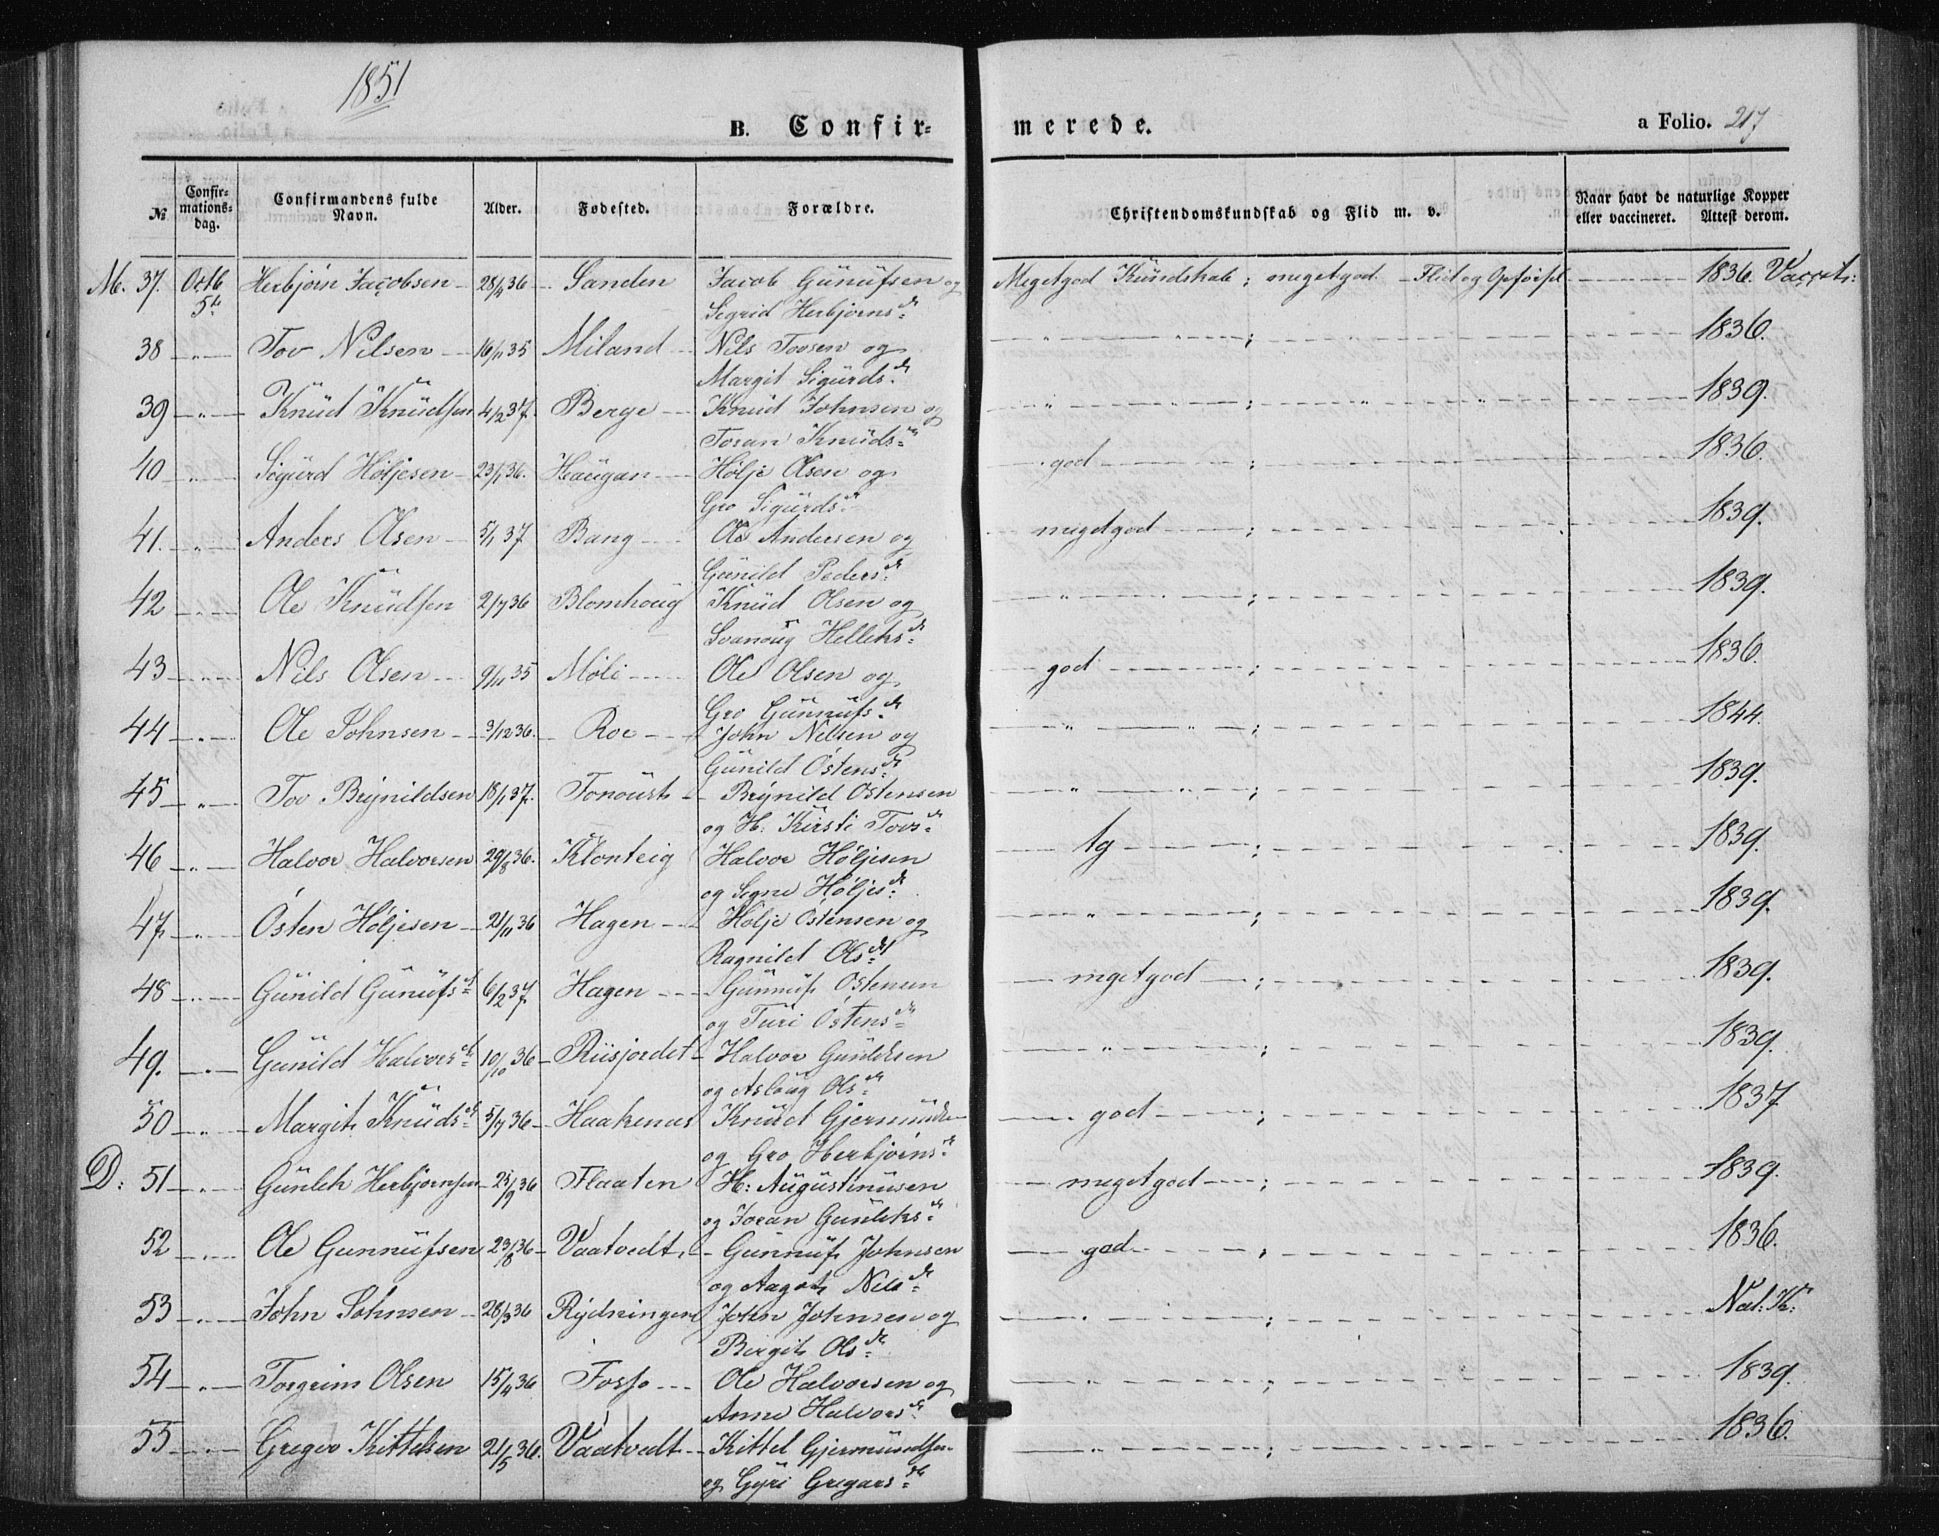 1851
B. Confirmerede.
a Folio. 217
№ Confirmationsdag. Confirmandens fulde Navn. Alder. Fødested. Forældre. Christendomskundskab og Flid m. v. Naar havt de naturlige Kopper eller vaccineret. Attest derom.
M. 37. Octb 5te Herbjørn Jacobsen 28/4 36 Sanden Jacob Gunufsen og Megetgod Kundskab; megetgod Flid og Opførsel 1836.
Sigrid Herbjørnsdr
38 " Tov Nilsen 16/11 35 Miland Nils Tovsen og " " ; 1836.
Margit Sigurdsdr
39 " Knud Knudsen 4/2 37. Berge Knud Johnsen og " " ; " " 1839.
Toran Knudsdr
40 " Sigurd Høljesen 23/1 36. Haugan Hølje Olsen og god ; 1836.
Gro Sigurdsdr
41. " Anders Olsen 5/1 37 Bang Ole Andersen og megetgod ; 1839.
Gunild Pedersdr
42 " Ole Knudsen 2/7 36 Blomhoug Knud Olsen og " " ; 1839.
Svanoug Helleksdr
43 " Nils Olsen 9/11 35 Møli Ole Olsen og god ; 1836.
Gro Gunnufsdr
44 " Ole Johnsen 3/12 36. Roe John Nilsen og " " ; 1844.
Gunild Østensdr
45 " Tov Brynildsen 18/1 37. Tonoust Brynild Østensen " " ; 1839.
og H: Kirsti Tovsdr
46 " Halvor Halvorsen 29/8 36. Klonteig Halvor Høljesen tg ; 1839.
og Signe Høljesdr
47. " Østen Høljesen 21/11 36 Hagen Hølje Østensen og " ; 1839.
Ragnild Olsdr
48 " Gunild Gunufsdr 6/2 37. Hagen Gunnuf Østensen megetgod ; 1839.
og Turi Østensdr
49. " Gunild Halvorsdr 10/10 36 Riisjordet Halvor Gunleksen " ; 1839.
og Aslaug Olsdr
50 " Margit Knudsdr 5/7 36 Haakenæs Knud Gjermundsen god ; 1837
og Gro Herbjørnsdr
D: 51 " Gunlek Herbjørnsen 25/9 36 Flaaten H: Augustinusen megetgod ; 1839.
og Joran Gunleksdr
52 " Ole Gunnufsen 23/8 36 Vaatvedt Gunnuf Johnsen god ; 1836.
og Aagot Nilsdr
53 " John Johnsen 28/3 36 Rydningen John Johnsen og " ; Nat: K:
Birgit Olsdr
54 " Torgrim Olsen 15/4 36 Fosso Ole Halvorsen og " ; 1839.
Anne Halvorsdr
55 " Gregar Kittelsen 21/5 36. Vaatvedt Kittel Gjermundsen " ; 1836.
og Gyri Gregarsdr